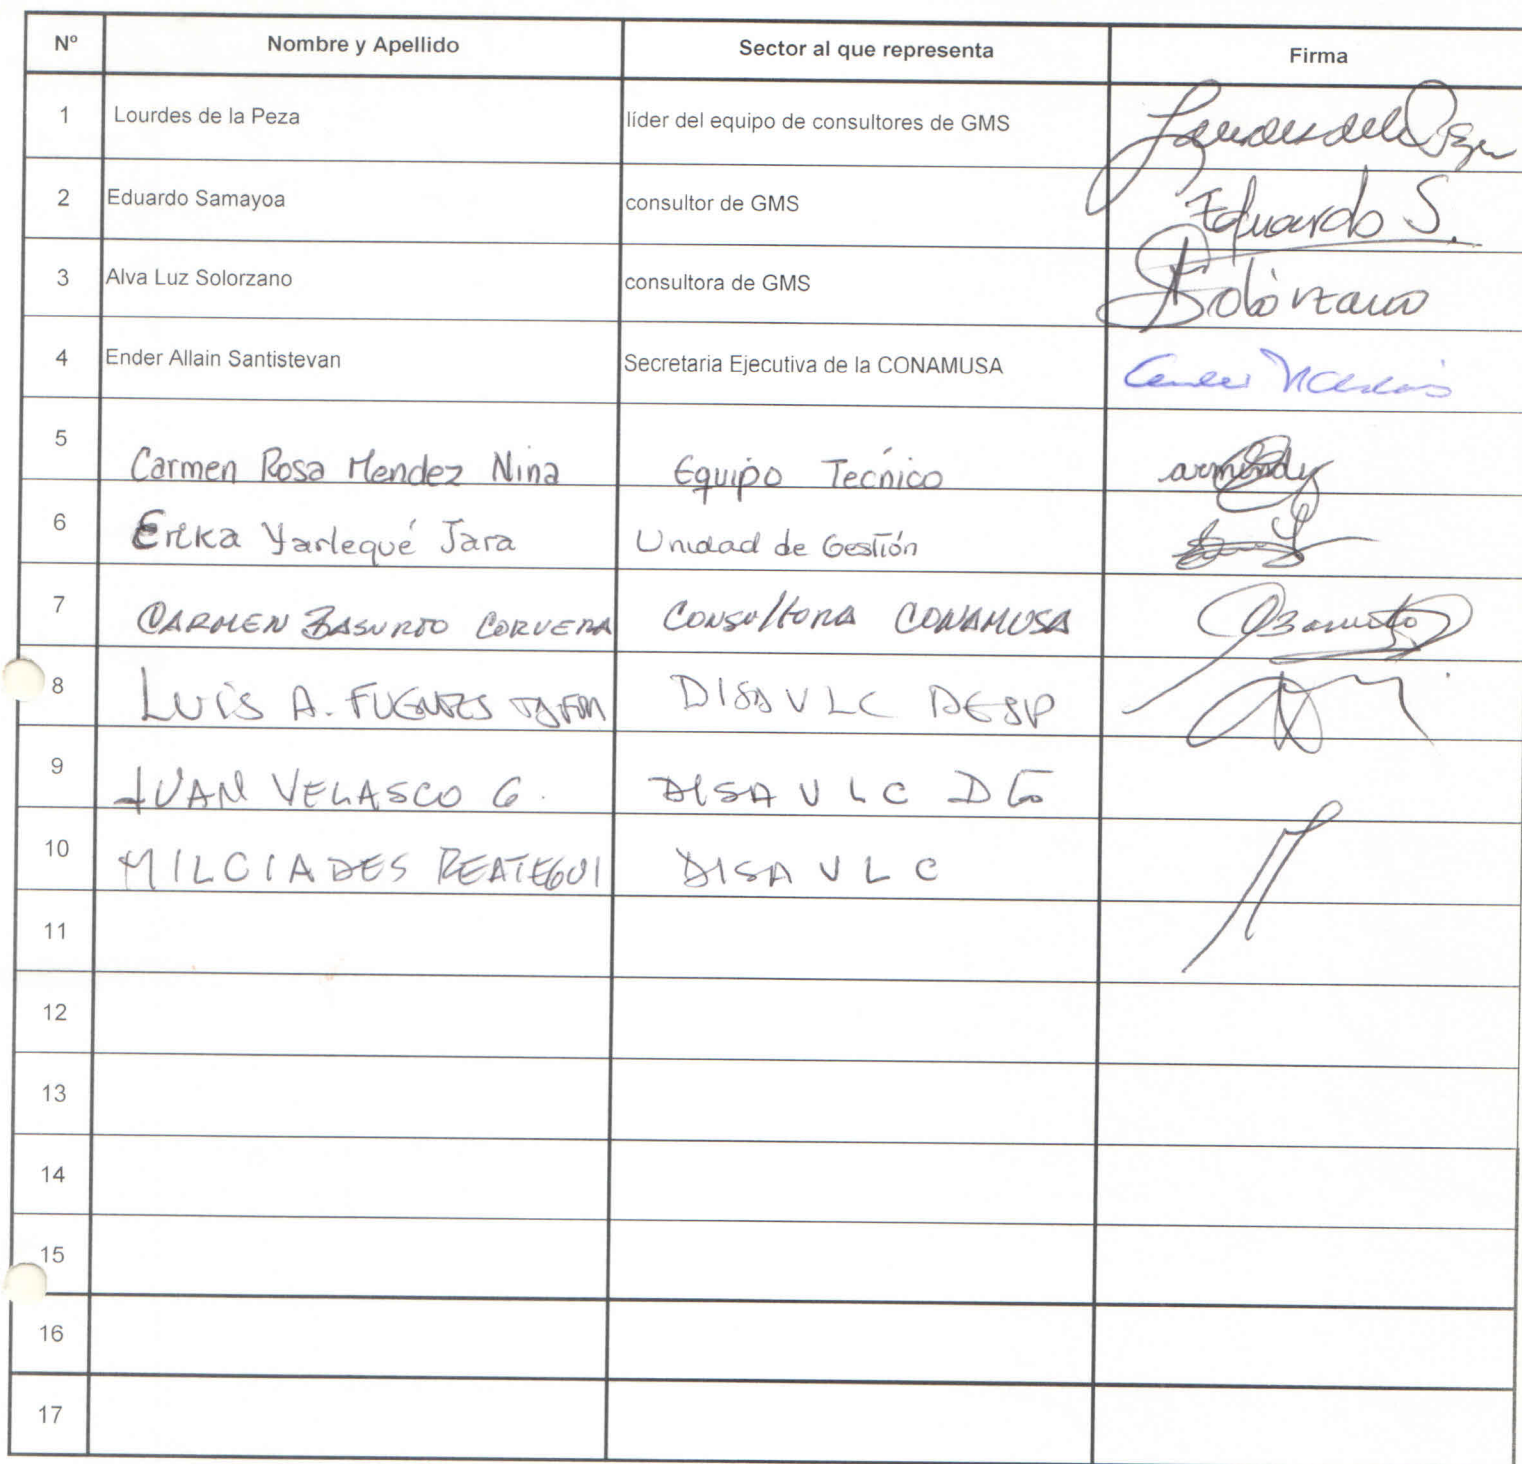 Nº Nombre y Apellido Sector al que representa Firma
1 Lourdes de la Peza líder del equipo de consultores de GMS
2 Eduardo Samayoa consultor de GMS Eduardo S.
3 Alva Luz Solorzano consultora de GMS Solórzano
4 Ender Allain Santistevan Secretaria Ejecutiva de la CONAMUSA
5 Carmen Rosa Mendez Nina Equipo Tecnico
6 Erika Yarlequé Jara Unidad de Gestión
7 CARMEN BASURTO CORVERA CONSULTORA CONAMUSA
8 LUIS A. FUENTES DISA V LC DESP
9 JUAN VELASCO G. DISA V LC
10 MILCIADES REATEGUI DISA V LC
11
12
13
14
15
16
17